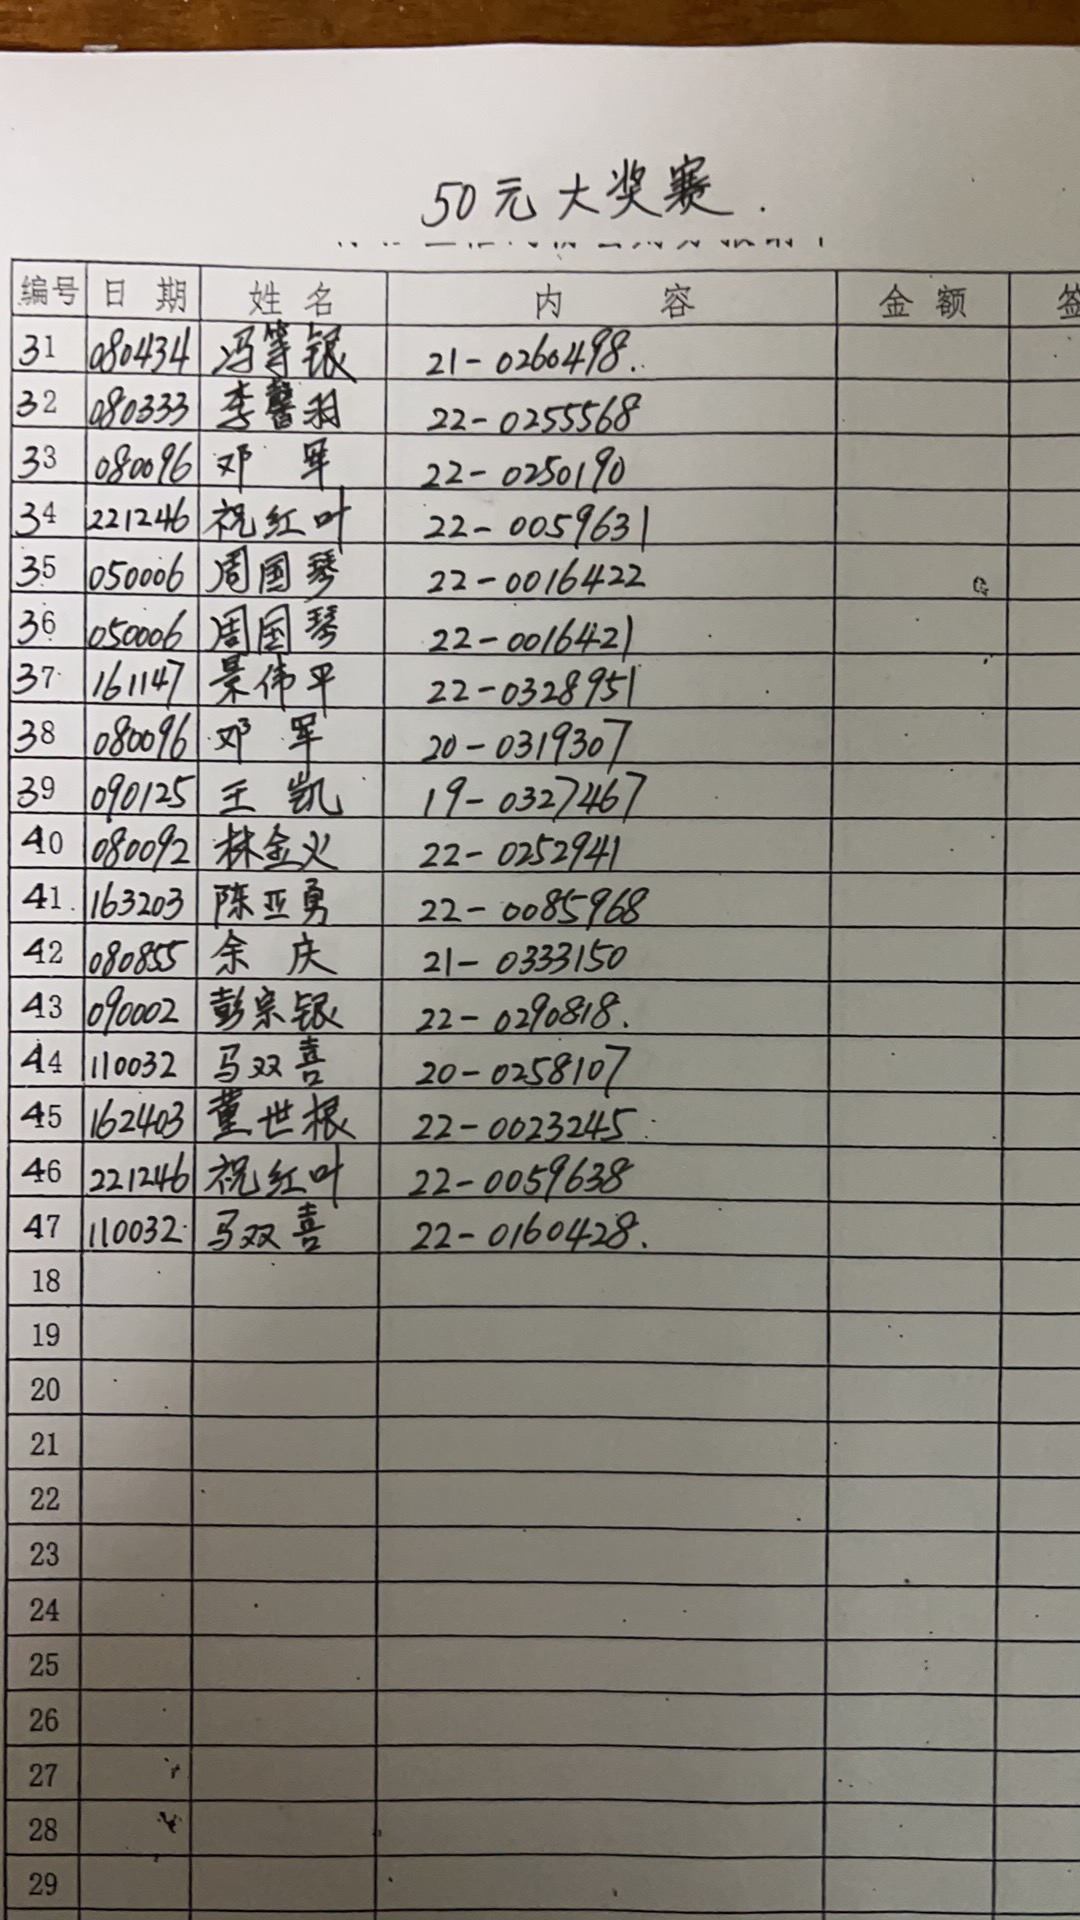 50元大奖赛.
编号 日 期 姓 名 内 容 金 额 签
31 080434 冯等银 21-0260498.
32 080333 李馨羽 22-0255568
33 080096 邓 军 22-0250190
34 221246 祝红叶 22-0059631
35 050006 周国琴 22-0016422
36 050006 周国琴 22-0016421
37 161147 景伟平 22-0328951
38 080096 邓 军 20-0319307
39 090125 王 凯 19-0327467
40 080092 林金义 22-0252941
41 163203 陈亚勇 22-0085968
42 080855 余 庆 21-0333150
43 090002 彭宗银 22-0290818.
44 110032 马双喜 20-0258107
45 162403 董世根 22-0023245
46 221246 祝红叶 22-0059638
47 110032 马双喜 22-0160428.
18
19
20
21
22
23
24
25
26
27
28
29